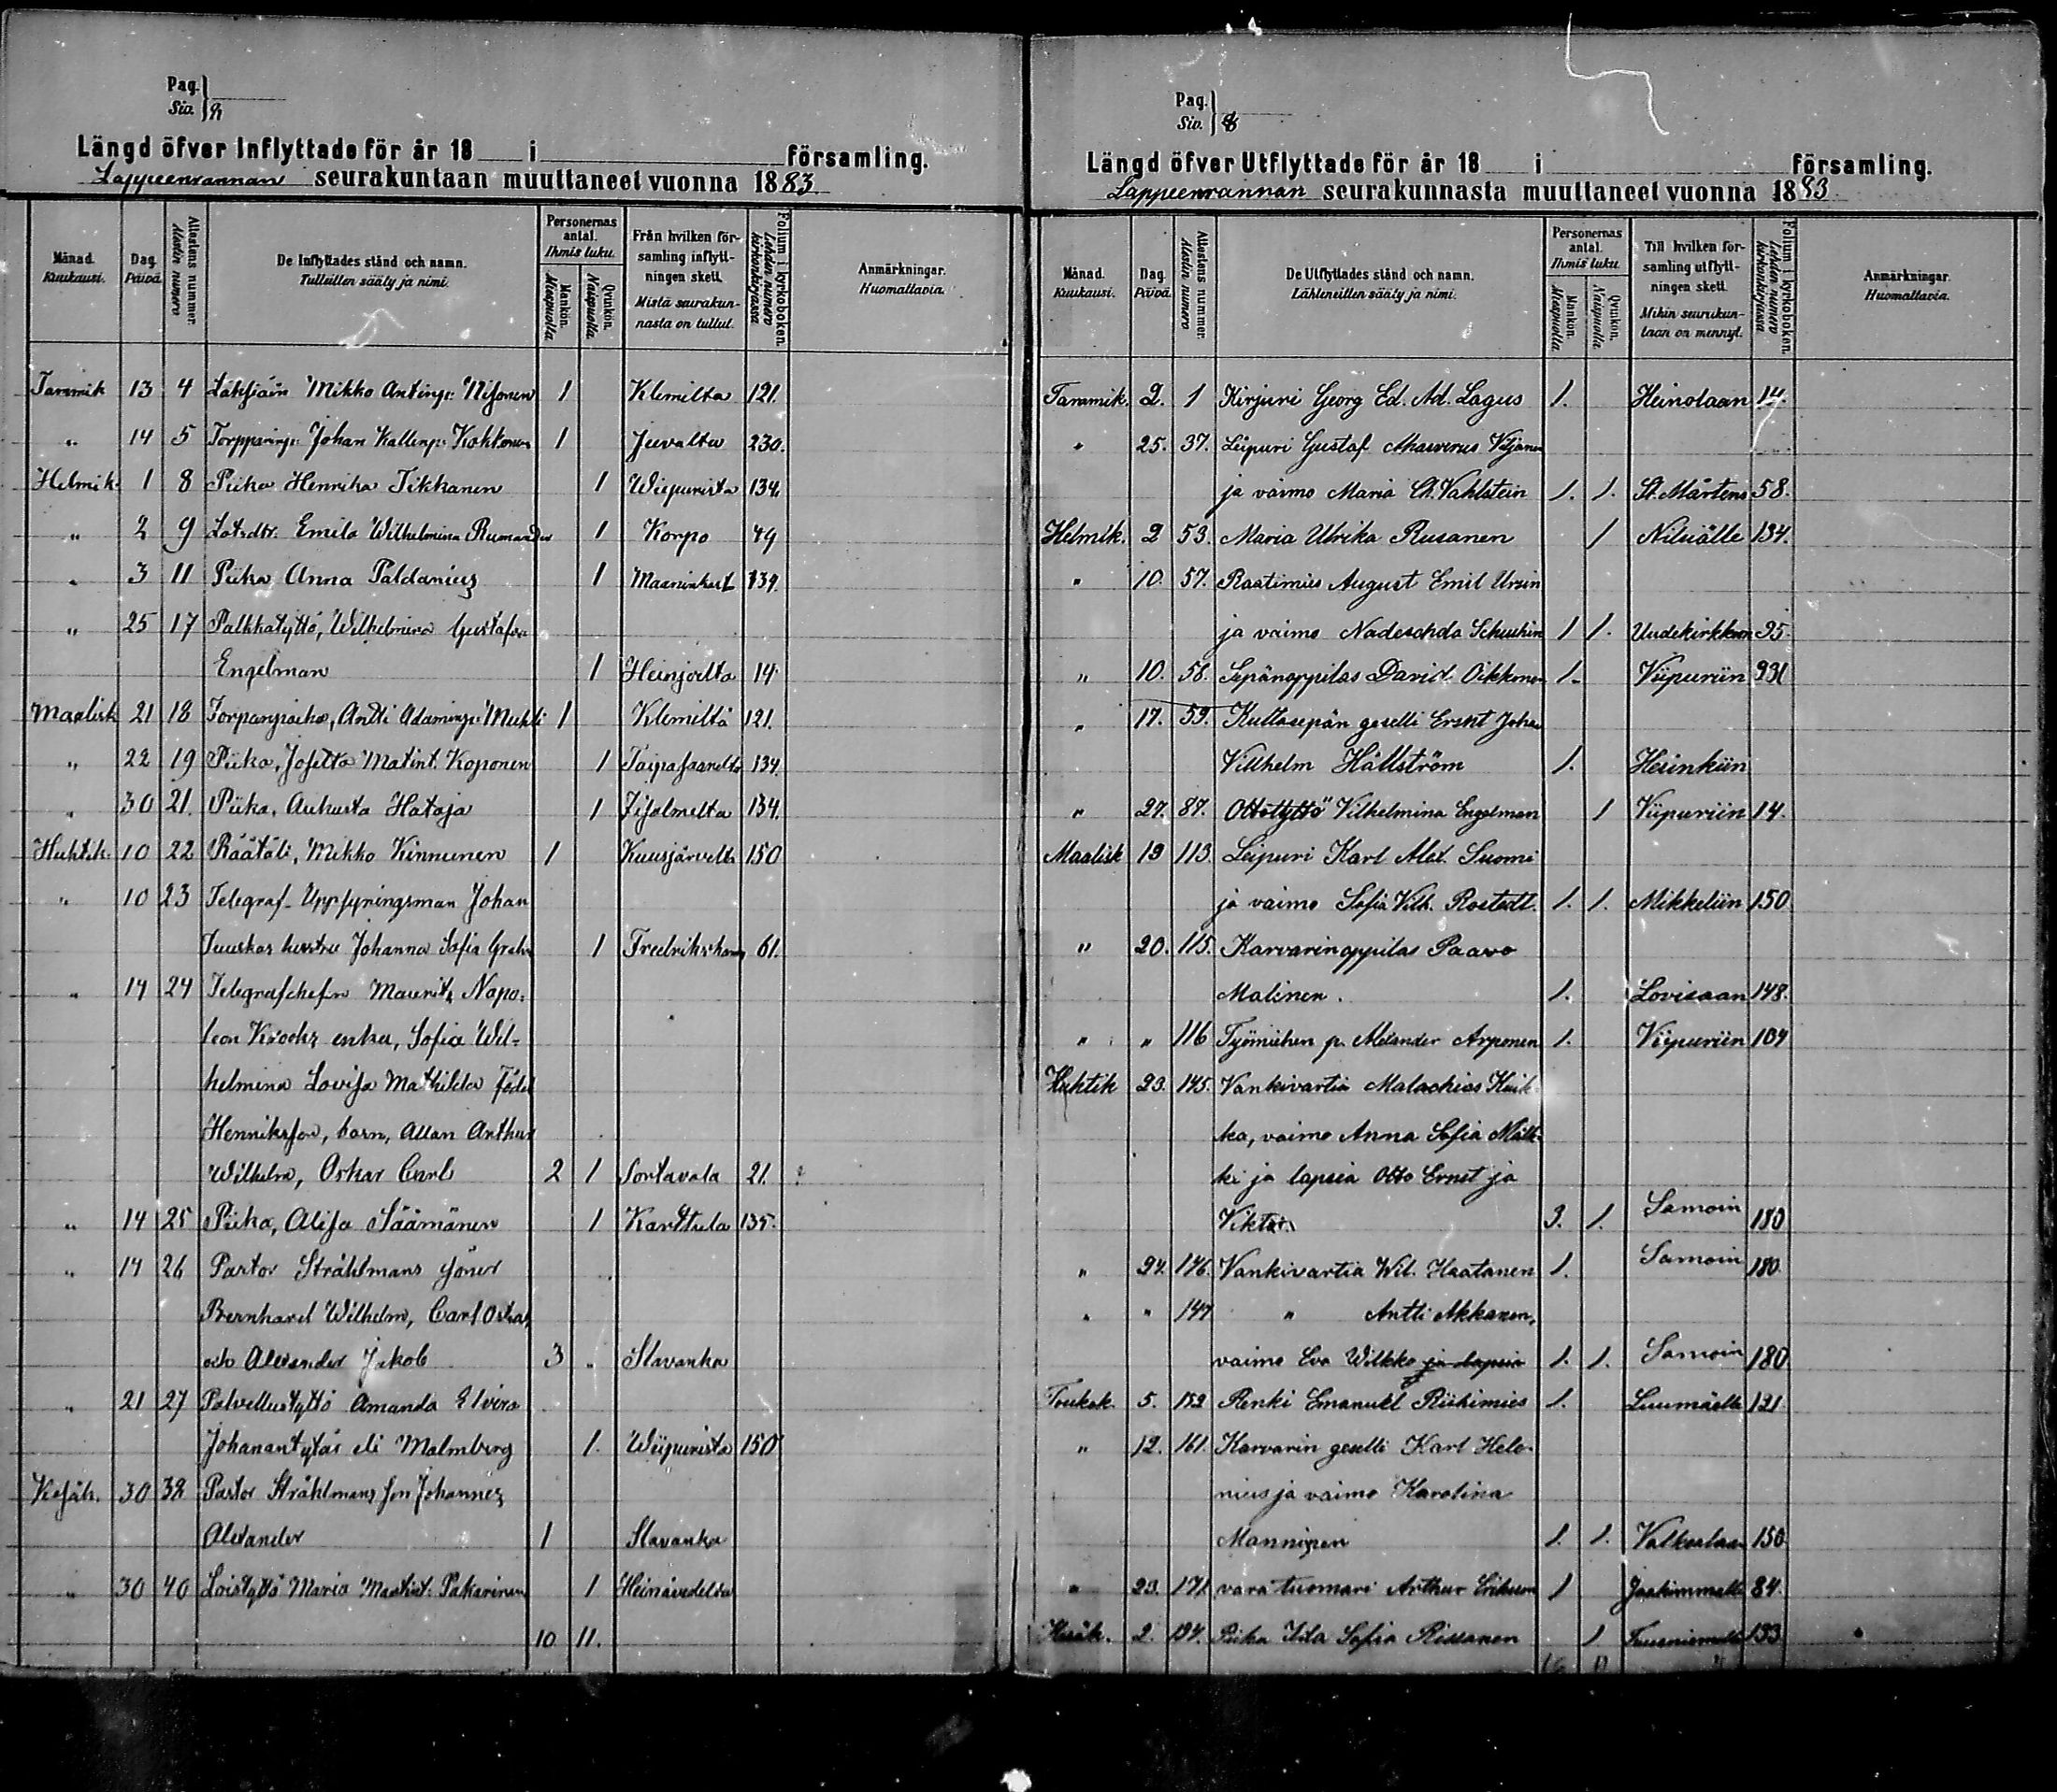 Pag.
Siv.
Längd öfver Inflyttade för år 18 i församling.
Lappeenrannan seurakuntaan muuttaneet vuonna 1883
Månad. Kuukausi.
Dag. Päivä.
Attestens nummer. Allestin numero
De Inflyttades stånd och namn. Tulleitten sääty ja nimi.
Personernas antal. Ihmis luku.
Mankön. Miespuolia
Qvinkön. Naispuolia
Från hvilken församling inflyttningen skett. Mistä seurakunnasta on tullut.
Folium i kyrkoboken. Lehden numero kirkonkirjassa
Anmärkningar. Huomattavia.
Tammik 13 4 Mikko Antinp. 1 Klemiltä 121.
" 14 5 Johan Kallenp. Kohtonen 1 230.
Helmik. 1 8 Piika Henrika Tikkanen 1 Wiipurista 134.
" 2 9 Emila Wilhelmina 1 Korpo 49
" 3 11 Piika Anna Paldanius 1 139.
" 25 17 Palkkatyttö, Wilhelmina
Engelman 1 Heinjoelta 14
Maalisk 21 18 Antti Adaminp. 1 Klemiltä 121.
" 22 19 Piika, Matint. Koponen 1 Taipasaarelta 134.
" 30 21. Piika, Aukusta Hataja 1 134.
Huhtik. 10 22 Räätäli, Mikko Kinnunen 1 Kuusjärveltä 150
" 10 23 Telegraf-Uppsyningsman Johan
hustru Johanna Sofia 1 Fredrikshamn 61.
" 14 24 Telegrafchefen Maurits Napo-
leon enka, Sofia Wil-
helmina Lovisa Mathilda
Henriksson, barn, Allan Arthur
Wilhelm, Oskar Carl 2 1 Sortavala 21.
" 14 25 Piika, Alisa Säämänen 1 Karttula 135.
" 14 26 Pastor Stråhlmans söner
Bernhard Wilhelm, Carl Oskar,
och Alexander Jakob 3 " Slavanka
" 21 27 Palvellustyttö Amanda Elvira
Johanantytär eli Malmberg 1. Wiipurista 150
Kesäk. 30 38 Pastor Stråhlmans son Johannes
Alexander 1 Slavanka
" 30 40 Loistyttö Maria Pakarinen 1 Heinävedeltä
10 11.
Pag.
Siv.
Längd öfver Utflyttade för år 18 i församling.
Lappeenrannan seurakunnasta muuttaneet vuonna 1883
Månad. Kuukausi.
Dag. Päivä.
Attestens nummer. Allestin numero
De Utflyttades stånd och namn. Lähteneitten sääty ja nimi.
Personernas antal. Ihmis luku.
Mankön. Miespuolia
Qvinkön. Naispuolia
Till hvilken församling utflyttningen skett. Mihin seurakuntaan on mennyt.
Folium i kyrkoboken. Lehden numero kirkonkirjassa
Anmärkningar. Huomattavia.
Tammik. 2. 1 Kirjuri Georg Ed. Ad. Lagus 1. Heinolaan 14.
" 25. 37. Leipuri Gustaf Viljanen
ja vaimo Maria Ch. Vahlstein 1. 1. St. Mårtens 58.
Helmik. 2 53. Maria Ulrika Rusanen 1 Nilsiälle 134.
" 10. 57. Raatimies August Emil Ursin
ja vaimo Nadeschda 1 1. Uudekirkkoon 95.
" 10. 58. Sepänoppilas David Oikkonen 1. Viipuriin 231
" 17. 59. Kultasepän geselli Johan
Villhelm Hällström 1. Hesinkiin
" 27. 87. Ottotyttö Vilhelmina Engelman 1 Viipuriin 14.
Maalisk 19 113. Leipuri Karl Alex. Suomi
ja vaimo Sofia Vilh. Rostedt. 1. 1. Mikkeliin 150
" 20. 115. Karvarinoppilas Paavo
Malinen. 1. Lovisaan 148.
" " 116 Työmiehen p. Alexander Arponen 1. Viipuriin 104
Huhtik 23. 145. Vankivartia Malachias
ka, vaimo Anna Sofia
ki ja lapsia Otto Ernst ja
Viktor. 3. 1. Samoin 180
" 24. 146. Vankivartia Wil. Haatanen 1. Samoin 180.
" " 147 " Antti Akkanen,
vaimo Eva Wilkko ja lapsia 1. 1. Samoin 180
Toukok. 5. 152 Renki Emanuel Riihimies 1. Luumäelle 121.
" 12. 161. Karvarin geselli Karl Hele-
nius ja vaimo Karolina
Manninen 1. 1. Valkealaan 150
" 23. 171. vara tuomari Arthur 1 84.
Kesäk. 2. 194. Piika Ida Sofia Rissanen 1 133